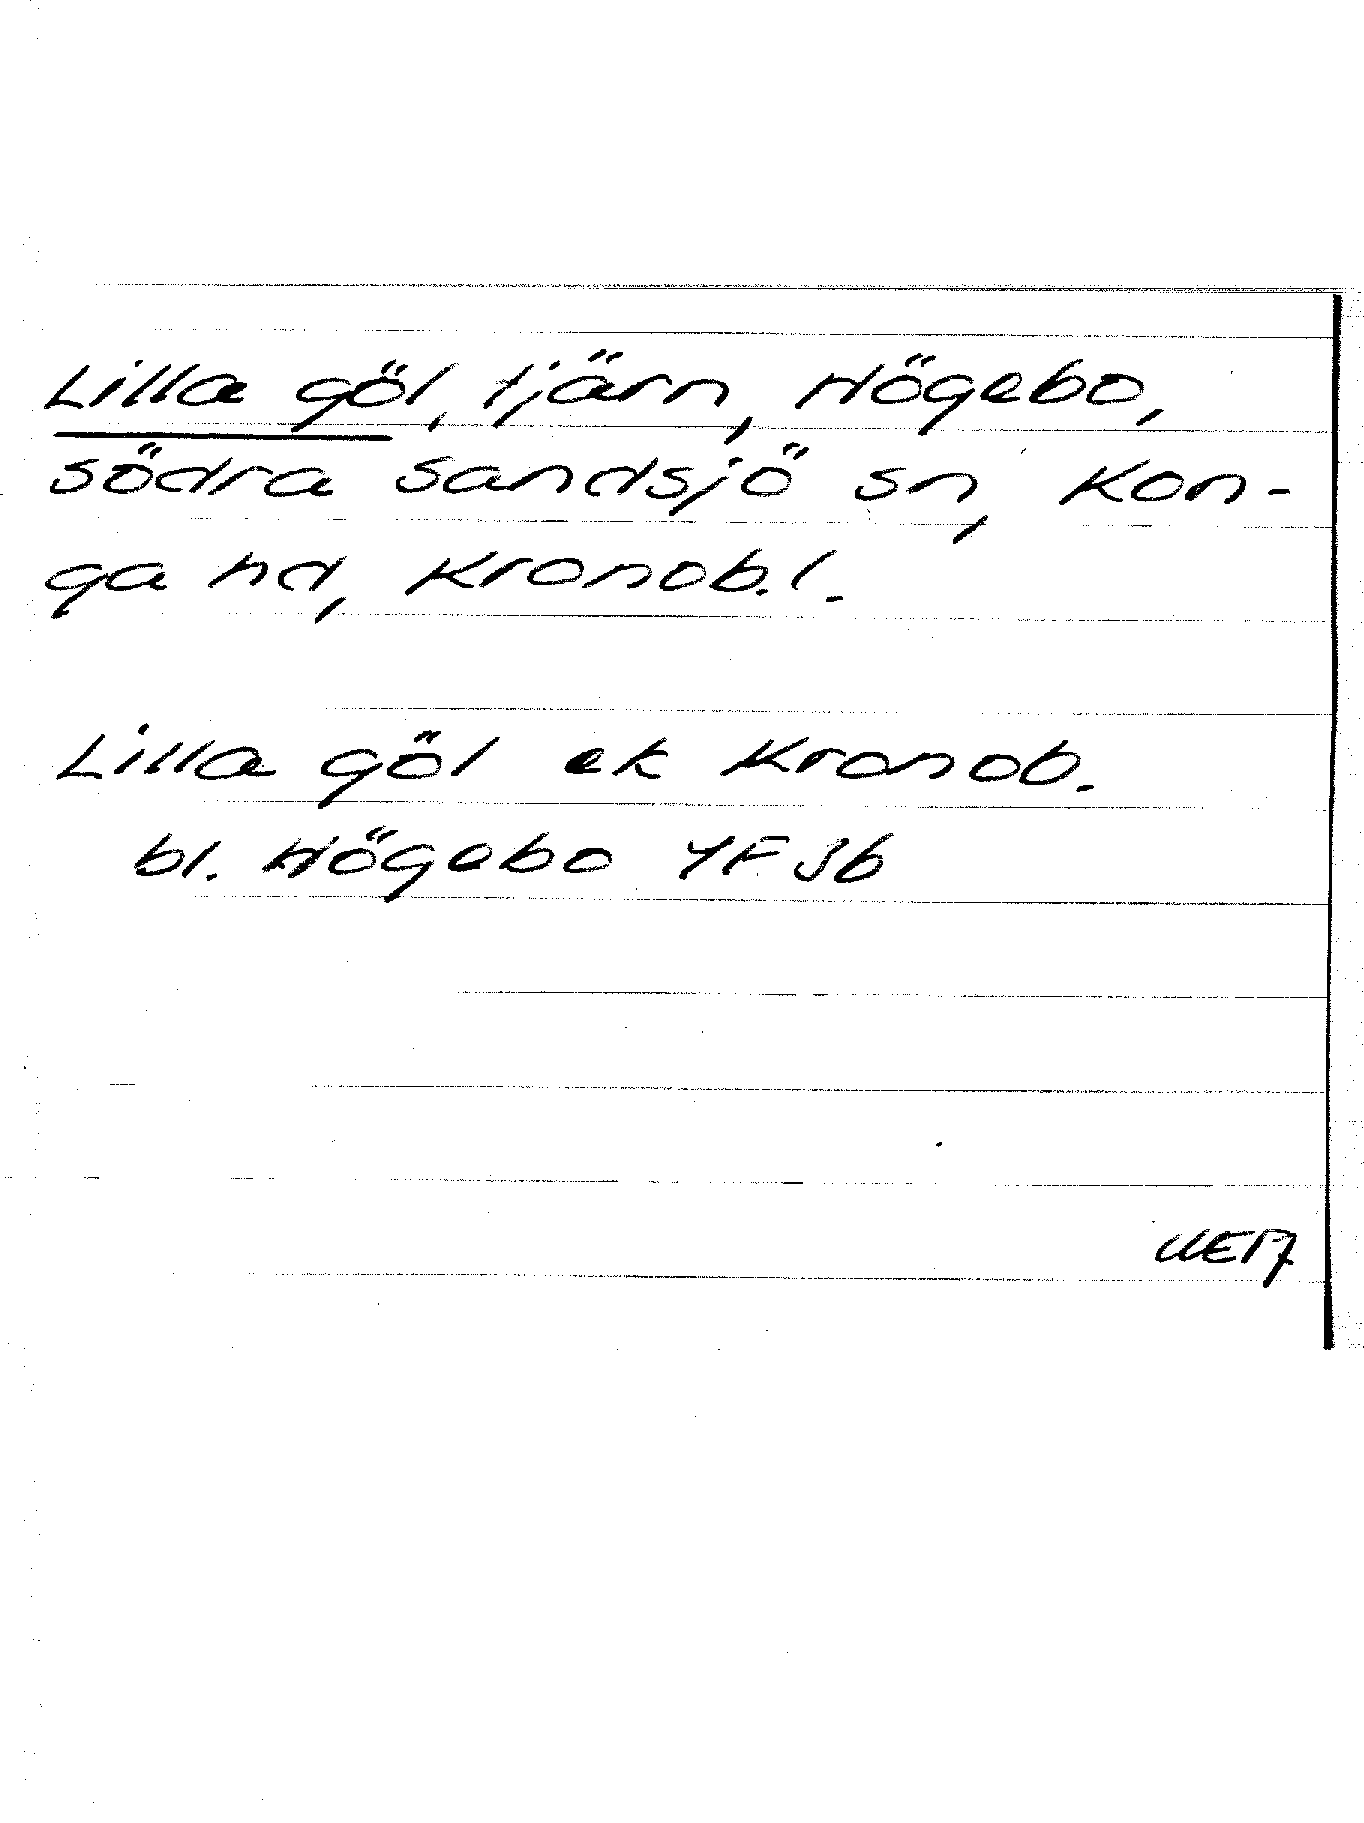 Lilla göl, tjärn, Högebo,
södra sandsjö sn, Kon-
ga hd, Kronob. l.
Lilla göl ek Kronob.
bl. Högebo 4F 3b